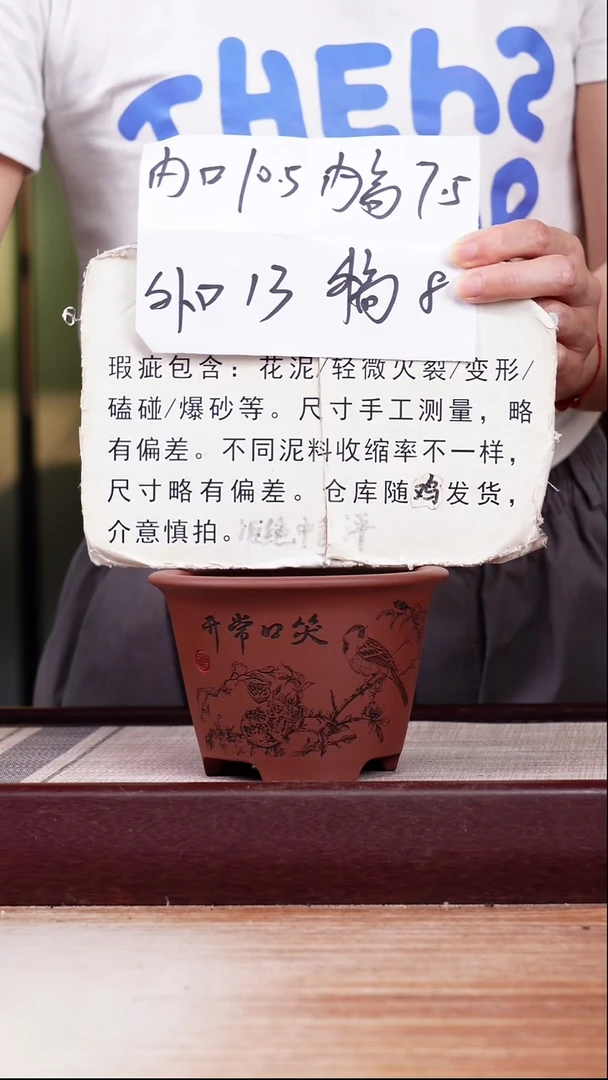 THEhS
内口10.5 内高7.5
外口 13 外高 8
瑕疵包含：花泥/轻微火裂/变形/
磕碰/爆砂等。尺寸手工测量，略
有偏差。不同泥料收缩率不一样，
尺寸略有偏差。仓库随鸡发货，
介意慎拍。
开常口笑